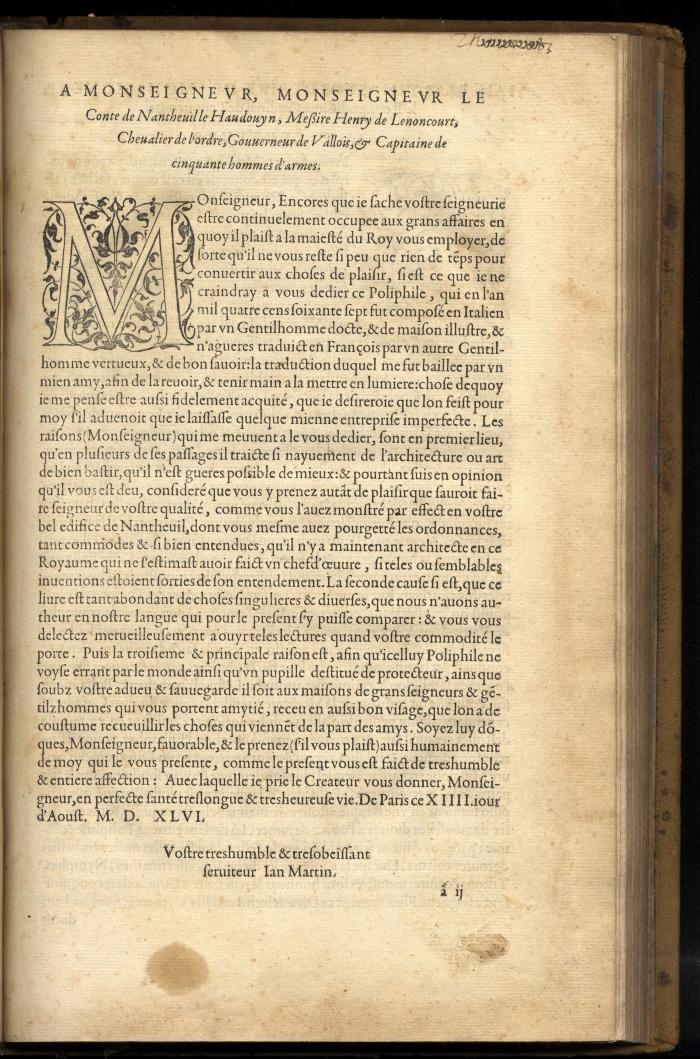 A MONSEIGNEVR, MONSEIGNEVR LE
Conte de Nantheuille Haudouyn, Meßire Henry de Lenoncourt,
Cheualier de l'ordre, Gouuerneur de Vallois, & Capitaine de
cinquante hommes d'armes.
MOnſeigneur, Encores que ie ſache voſtre ſeigneurie
eſtre continuelement occupee aux grans affaires en
quoy il plaiſt a la maieſté du Roy vous employer, de
ſorte qu'il ne vous reſte ſi peu que rien de tẽps pour
conuertir aux choſes de plaiſir, ſi eſt ce que ie ne
craindray a vous dedier ce Poliphile, qui en l'an
mil quatre cens ſoixante ſept fut compoſé en Italien
par vn Gentilhomme docte, & de maiſon illuſtre, &
n'agueres traduict en François par vn autre Gentil-
homme vertueux, & de bon ſauoir: la traduction duquel me fut baillee par vn
mien amy, afin de la reuoir, & tenir main a la mettre en lumiere: choſe dequoy
ie me penſe eſtre auſsi fidelement acquité, que ie deſireroie que lon feiſt pour
moy ſ'il aduenoit que ie laiſſaſſe quelque mienne entrepriſe imperfecte. Les
raiſons (Monſeigneur) qui me meuuent a le vous dedier, ſont en premier lieu,
qu'en pluſieurs de ſes paſſages il traicte ſi nayuement de l'architecture ou art
de bien baſtir, qu'il n'eſt gueres poſsible de mieux: & pourtant ſuis en opinion
qu'il vous eſt deu, conſideré que vous y prenez autãt de plaiſir que ſauroit fai-
re ſeigneur de voſtre qualité, comme vous l'auez monſtré par effect en voſtre
bel edifice de Nantheuil, dont vous meſme auez pourgetté les ordonnances,
tant commodes & ſi bien entendues, qu'il n'y a maintenant architecte en ce
Royaume qui ne ſ'eſtimaſt auoir faict vn chefd'œuure, ſi teles ou ſemblables
inuentions eſtoient ſorties de ſon entendement. La ſeconde cauſe ſi eſt, que ce
liure eſt tant abondant de choſes ſingulieres & diuerſes, que nous n'auons au-
theur en noſtre langue qui pour le preſent ſ'y puiſſe comparer: & vous vous
delectez merueilleuſement a ouyr teles lectures quand voſtre commodité le
porte. Puis la troiſieme & principale raiſon eſt, afin qu'icelluy Poliphile ne
voyſe errant par le monde ainſi qu'vn pupille deſtitué de protecteur, ains que
ſoubz voſtre adueu & ſauuegarde il ſoit aux maiſons de grans ſeigneurs & gẽ-
tilzhommes qui vous portent amytié, receu en auſsi bon viſage, que l'on a de
couſtume recueuillir les choſes qui viennẽt de la part des amys. Soyez luy dõ-
ques, Monſeigneur, fauorable, & le prenez (ſ'il vous plaiſt) auſsi humainement
de moy qui le vous preſente, comme le preſent vous eſt faict de treshumble
& entiere affection: Auec laquelle ie prie le Createur vous donner, Monſei-
gneur, en perfecte ſanté treſlongue & tresheureuſe vie. De Paris ce XIIII. iour
d'Aouſt. M. D. XLVI.
Voſtre treshumble & tresobeiſſant
ſeruiteur Ian Martin.
ã ij